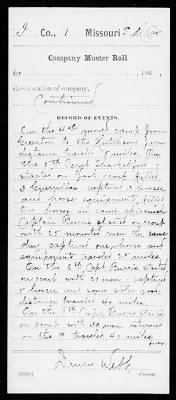 I Co., 1 Missouri S. M. Cav.
Company Muster Roll
for , 186 ,
shows station of company,
Continued
RECORD OF EVENTS.
On the 4th moved camp from
Greenton to the
distance traveled miles. On
the 5th Sergt
started on foot scout killed
3 Guerrillas captured 2 horses
and horse equipments, killed
two horses in same skirmish
Captain Burris started on scout
with 25 mounted men the same
day captured one horse and
equipments traveled 25 miles.
On the 6th Capt. Burris started
on scout with 20 men captured
2 horses and some
distance traveled 40 miles.
On the 8th Capt. Burris started
on scout with 30 men returned
on the 9th traveled 40 miles
Webb
(358) Copyist.